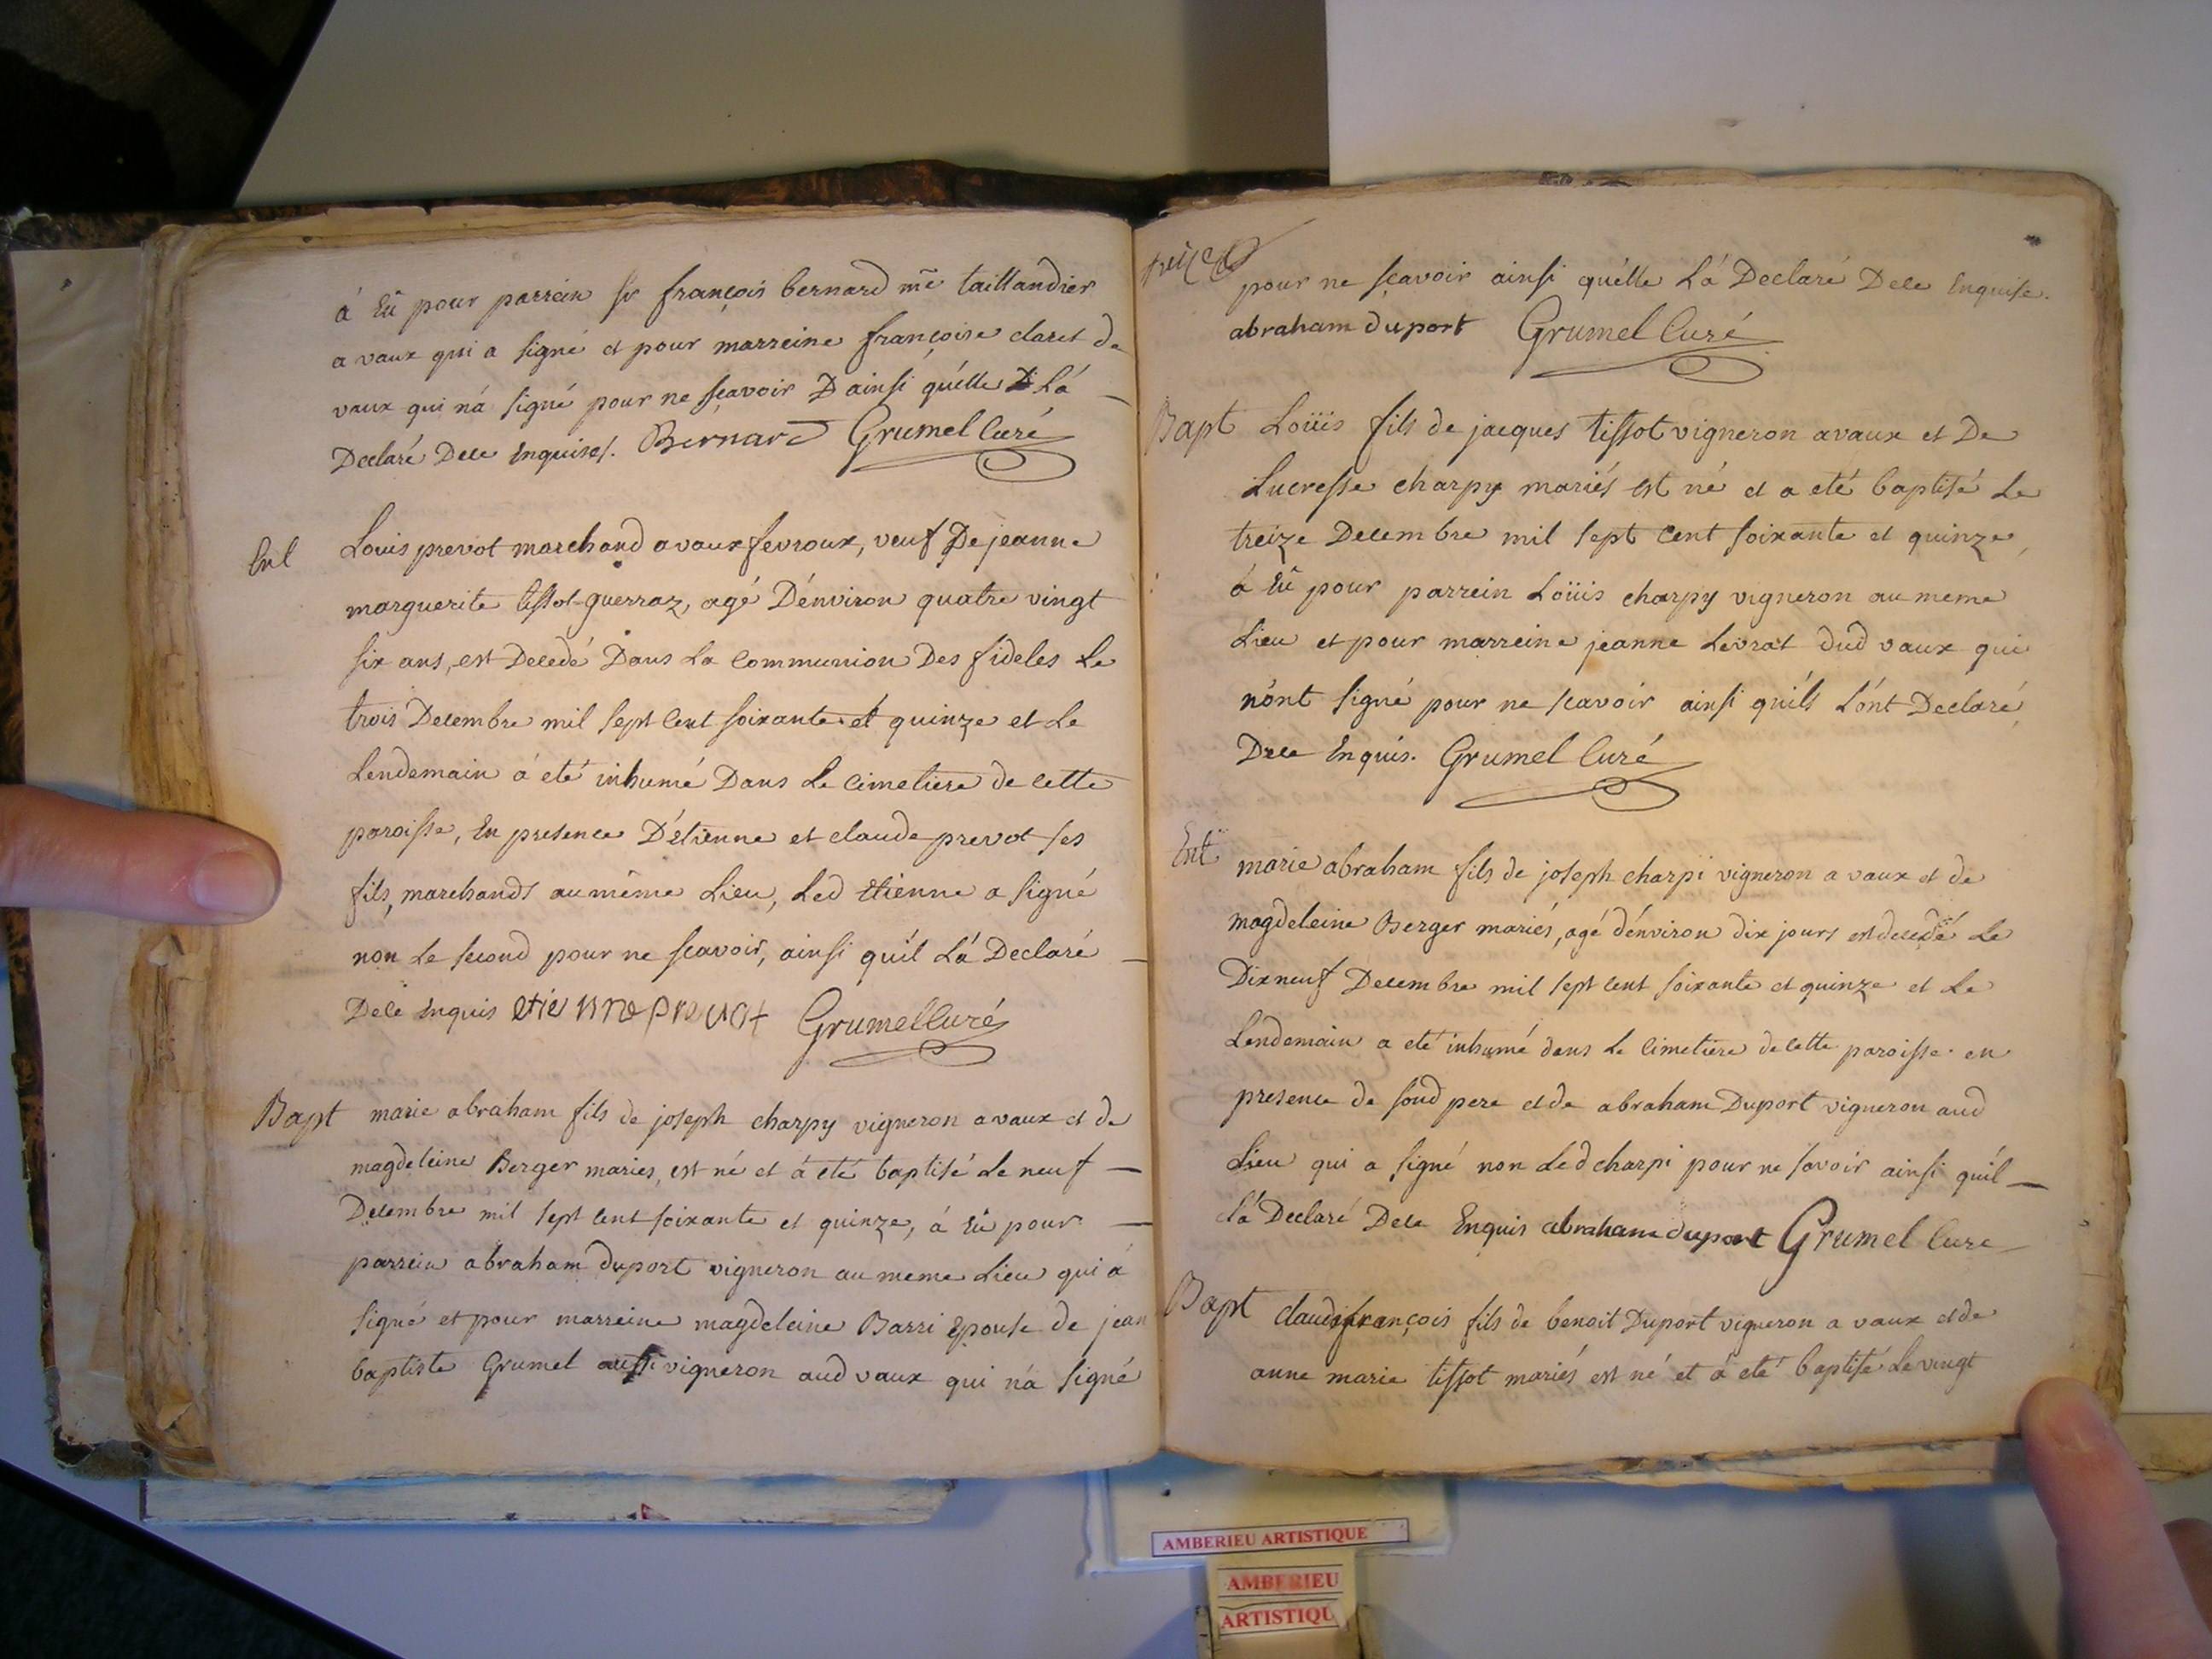 à Eû pour parrein sr françois bernard me taillandier
a vaux qui a signé et pour marreine françoise claret de
vaux qui n'a signé pour ne sçavoir ainsi qu'elle L'a
Declaré Dece Enquise. Bernard Grumel Curé
Ent Louis prevot marchand a vaux fevroux, veuf De jeanne
marguerite tissot-guerraz, agé D'environ quatre vingt
six ans, est Decedé Dans La Communion Des fideles Le
trois Decembre mil sept Cent soixante et quinze et Le
Lendemain à eté inhumé Dans Le Cimetiere de cette
paroisse, En presence D'etienne et claude prevot ses
fils, marchands au même Lieu, Led etienne a signé
non Le second pour ne scavoir, ainsi qu'il L'a Declaré
Dece Enquis etienne prevot Grumel Curé
Bapt marie abraham fils de joseph charpy vigneron a vaux et de
magdeleine Berger maries, est né et à eté baptisé Le neuf
Decembre mil sept Cent soixante et quinze, à Eû pour
parrein abraham duport vigneron au meme Lieu qui a
signé et pour marreine magdeleine Barri Epouse de jean
baptiste Grumel aussi vigneron aud vaux qui n'a signé
treize
pour ne sçavoir ainsi qu'elle L'a Declaré Dece Enquise.
abraham duport Grumel Curé
Bapt Loüis fils de jacques tissot vigneron a vaux et De
Lucresse charpy mariés est né et a eté baptisé Le
treize Decembre mil sept Cent soixante et quinze,
à Eû pour parrein Loüis charpy vigneron au meme
Lieu et pour marreine jeanne Levrat dud vaux qui
n'ont signé pour ne scavoir ainsi qu'ils L'ont Declaré
Dece Enquis. Grumel Curé
Ent marie abraham fils de joseph charpi vigneron a vaux et de
magdeleine Berger mariés, agé d'environ dix jours est decedé Le
Dix neuf Decembre mil sept cent soixante et quinze et Le
Lendemain a eté inhumé dans Le Cimetiere de cette paroisse en
presence de sond pere et de abraham Duport vigneron aud
Lieu qui a signé non Led charpi pour ne savoir ainsi qu'il
L'a Declaré Dece Enquis abraham duport Grumel Cure
Bapt claude françois fils de benoit Duport vigneron a vaux et de
anne marie tissot mariés est né et à eté baptisé Le vingt
AMBERIEU ARTISTIQUE
AMBERIEU
ARTISTIQU